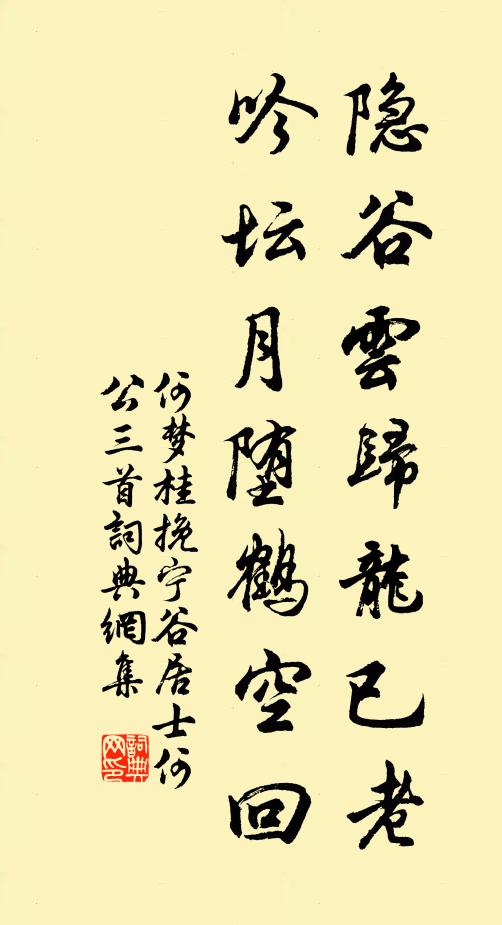 隐谷雲歸龍已老
吟坛月堕鶴空回
何梦桂挽宁谷居士何
公三首詞典網集
詞典
网印